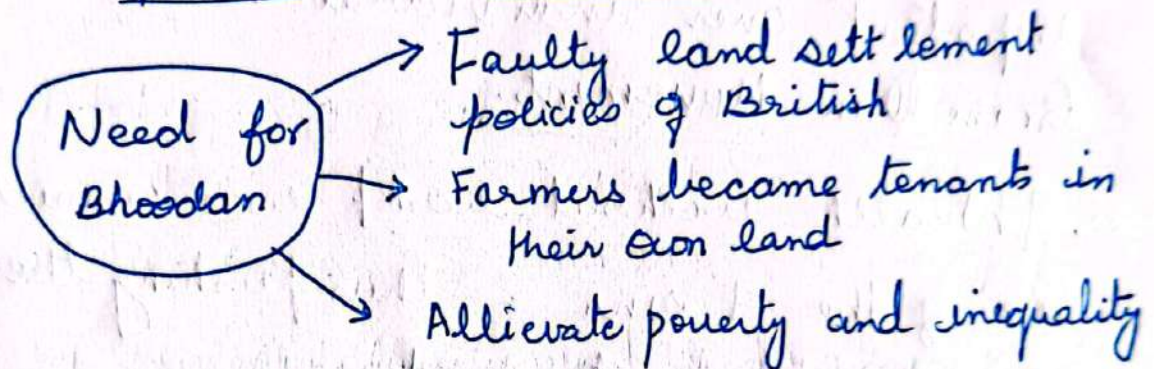 Need for
Bhoodan
Faulty land settlement
policies of British
Farmers became tenants in
their own land
Allievate poverty and inequality